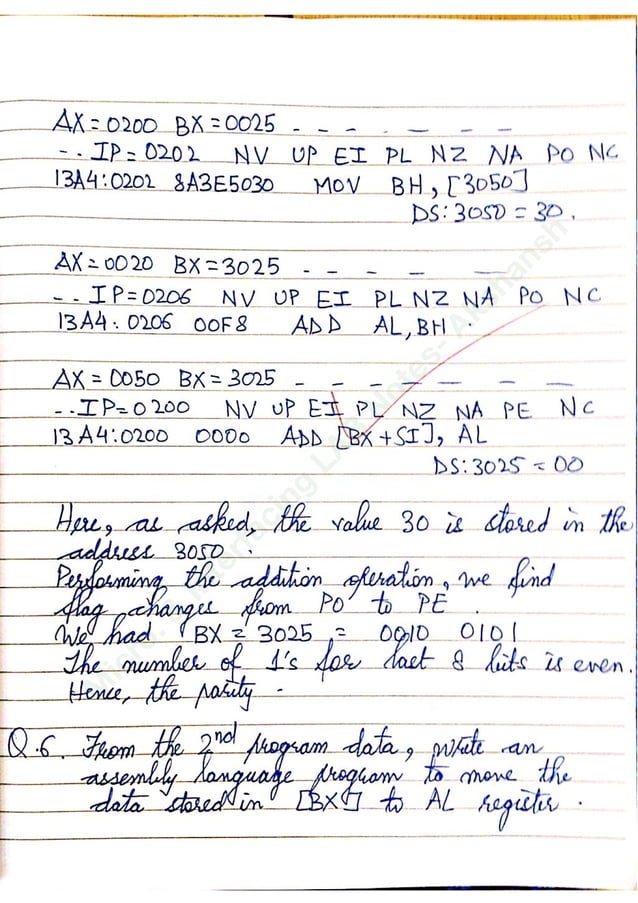 AX=0200 BX=0025 - - - - - - -
-.. IP=0202 NV UP EI PL NZ NA PO NC
13A4:0202 8A3E5030 MOV BH, [3050]
DS:3050 = 30.
AX=0020 BX=3025 - - - - -
-.. IP=0206 NV UP EI PL NZ NA PO NC
13A4:0206 00F8 ADD AL, BH.
AX=0050 BX=3025 - - - - - - -
-..IP=0200 NV UP EI PL NZ NA PE NC
13A4:0200 0000 ADD [BX+SI], AL
DS:3025 = 00
Here, as asked, the value 30 is stored in the
address 3050.
Performing the addition operation, we find
flag changes from PO to PE.
We had BX = 3025 = 0010 0101
The number of 1's for last 8 bits is even.
Hence, the parity -
Q.6. From the 2nd program data, write an
assembly language program to move the
data stored in [BX] to AL register.
Interfacing LAB Notes- Akanansh